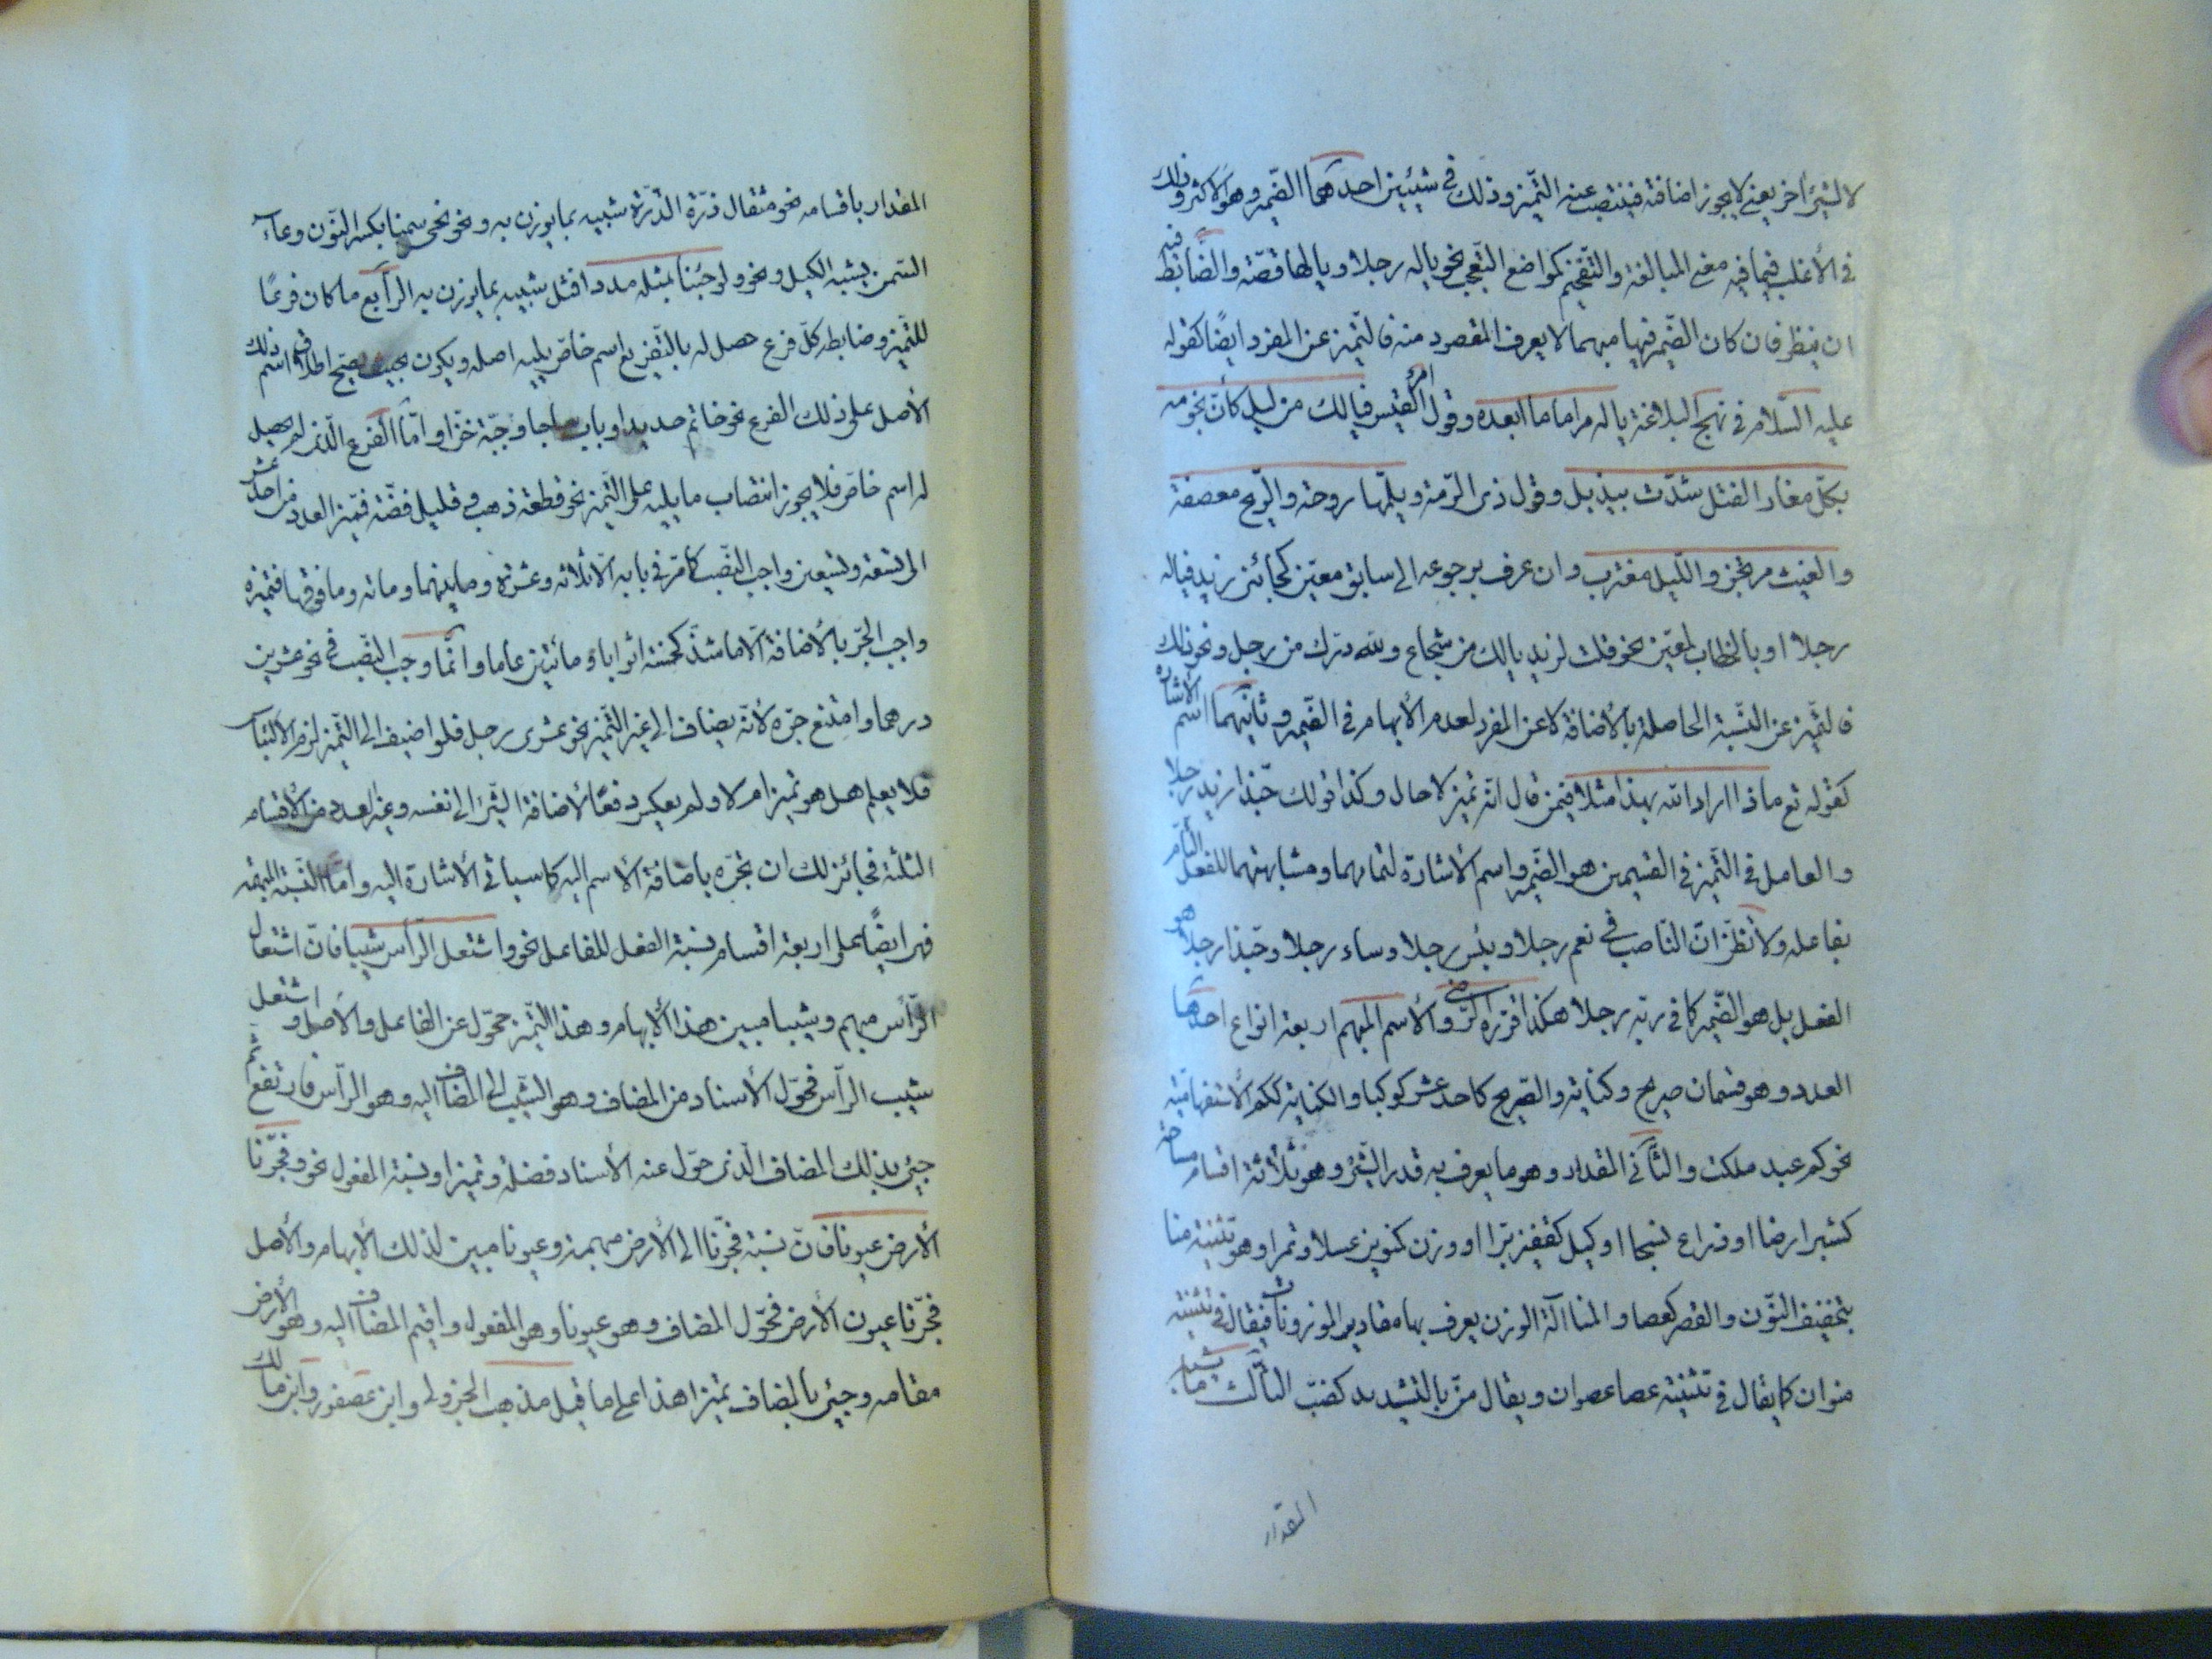 لا لشيئ آخر يعني لا يجوز اضافته فينتصب عنه التّميز وذلك في شيئين احدهما الضّمير وهو الاكثر وذلك
في الأغلب فيما فيه معنى المبالغة والتفخيم كمواضع التعجب نحو ياله رجلا ويالها قصّة والضّابط فيه
ان ينظر فان كان الضّمير فيها مبهما لا يعرف المقصود منه فالتّميز عن المفرد ايضًا كقوله
عليه السّلام في نهج البلاغة ياله مراما ما ابعده وقول امرئ القيس فيالك من ليل كأنّ نجومه
بكلّ مغار الفتل شدّت بيذبل وقول ذى الرّمة ويلمّها روحة والرّيح معصفة
والغيث مرتجز واللّيل مغترب وان عرف برجوعه الى سابق معيّن كجائنى زيد فياله
رجلا او بالخطاب لمعيّن نحو قلت لزيد يالك من شجاع ولله درّك من رجل ونحو ذلك
فالتّميز عن النّسبة الحاصلة بالأضافة لا عن المفرد لعدم الأبهام في الضّمير وثانيهما اسم الأشاره
كقوله تع ماذا اراد الله بهذا مثلا فيمن قال انّه تميز لا حال وكذا قولك حبّذا زيد رجلا
والعامل في التّميز في القسمين هو الضّمير واسم الأشارة لتمامهما ومشابهتهما للفعل التّام
بفاعله ولا تظنّ انّ النّاصب في نعم رجلا وبئس رجلا وساء رجلا وحبّذا رجلا هو
الفعل بل هو الضّمير كما في ربّه رجلا هكذا قرّره الرّضى والأسم المبهم اربعة انواع احدها
العدد وهو قسمان صريح وكناية والصّريح كاحد عشر كوكبا والكناية ككم الأستفهاميّة
نحو كم عبد ملكت والثّانى المقدار وهو ما يعرف به قدر الشّئ وهو ثلاثة اقسام مساحة
كشبر ارضا او ذراع نسجا او كيل كقفيز برّا او وزن كمنوين عسلا وتمرا وهو تثنية منا
بتخفيف النّون والقصر كعصا والمنا آلة الوزن يعرف بها مقادير الموزونات فيقال في تثنيته
منوان كما يقال في تثنية عصا عصوان ويقال منّ بالتّشديد كضبّ الثّالث ما يشبه
المقدار
المقدار باقسامه نحو مثقال ذرّة الذرّة شبيه بما يوزن به ونحو نحى سمنا بكسر النّون وعاء
السّمن يشبه الكيل ونحو ولو جئنا بمثله مددا فمثل شبيه بما يوزن به الرّابع ما كان فرعًا
للتّميز وضابطه كلّ فرع حصل له بالتّفريع اسم خاصّ يليه اصله ويكون بحيث يصحّ اطلاق اسم ذلك
الأصل على ذلك الفرع نحو خاتم حديدا وباب ساجا وجبّة خزّا وامّا الفرع الّذى لم يحصل
له اسم خاصّ فلا يجوز انتصاب ما يليه على التّميز نحو قطعة ذهب وقليل فضّة فتميز العدد من احد عشر
الى تسعة وتسعين واجب النّصب كما مرّ في بابه الّا ثلاثه وعشرة وما بينهما ومائه وما فوقها فتميزه
واجب الجرّ بالأضافة الّا ما شذّ كخمسة اثوابا ومائتين عاما وانّما وجب النّصب في نحو عشرين
درهما وامتنع جرّه لأنّه يضاف الى غير التّميز نحو عشرى رجل فلو اضيف الى التّميز لزم الالتباس
فلا يعلم هل هو تميز ام لا ولم يعكس دفعًا لأضافة الشّئ الى نفسه وغير العدد من الأقسام
الثلثة فجائز لك ان تجرّه باضافة الأسم اليه كما سيأتي الأشارة اليه وامّا النّسبة المبهمه
فهى ايضًا على اربعة اقسام نسبة الفعل للفاعل نحو واشتعل الرّأس شيبا فانّ اشتعال
الرّأس مبهم وشيبا مبين هذا الأبهام وهذا التّميز محوّل عن الفاعل والأصل واشتعل
شيب الرّأس فحوّل الأسناد من المضاف وهو الشّيب الى المضاف اليه وهو الرّأس فارتفع ثم
جيئ بذلك المضاف الّذى حوّل عنه الأسناد فضلة وتميزا ونسبة المفعول نحو وفجّرنا
الأرض عيونا فانّ نسبة فجّرنا الى الأرض مبهمة وعيونا مبين لذلك الأبهام والأصل
فجّرنا عيون الأرض فحوّل المضاف وهو عيونا وهو المفعول واقيم المضاف اليه وهو الأرض
مقامه وجيئ بالمضاف تميزا هذا على ما قيل مذهب الجزولى وابن عصفور وابن مالك